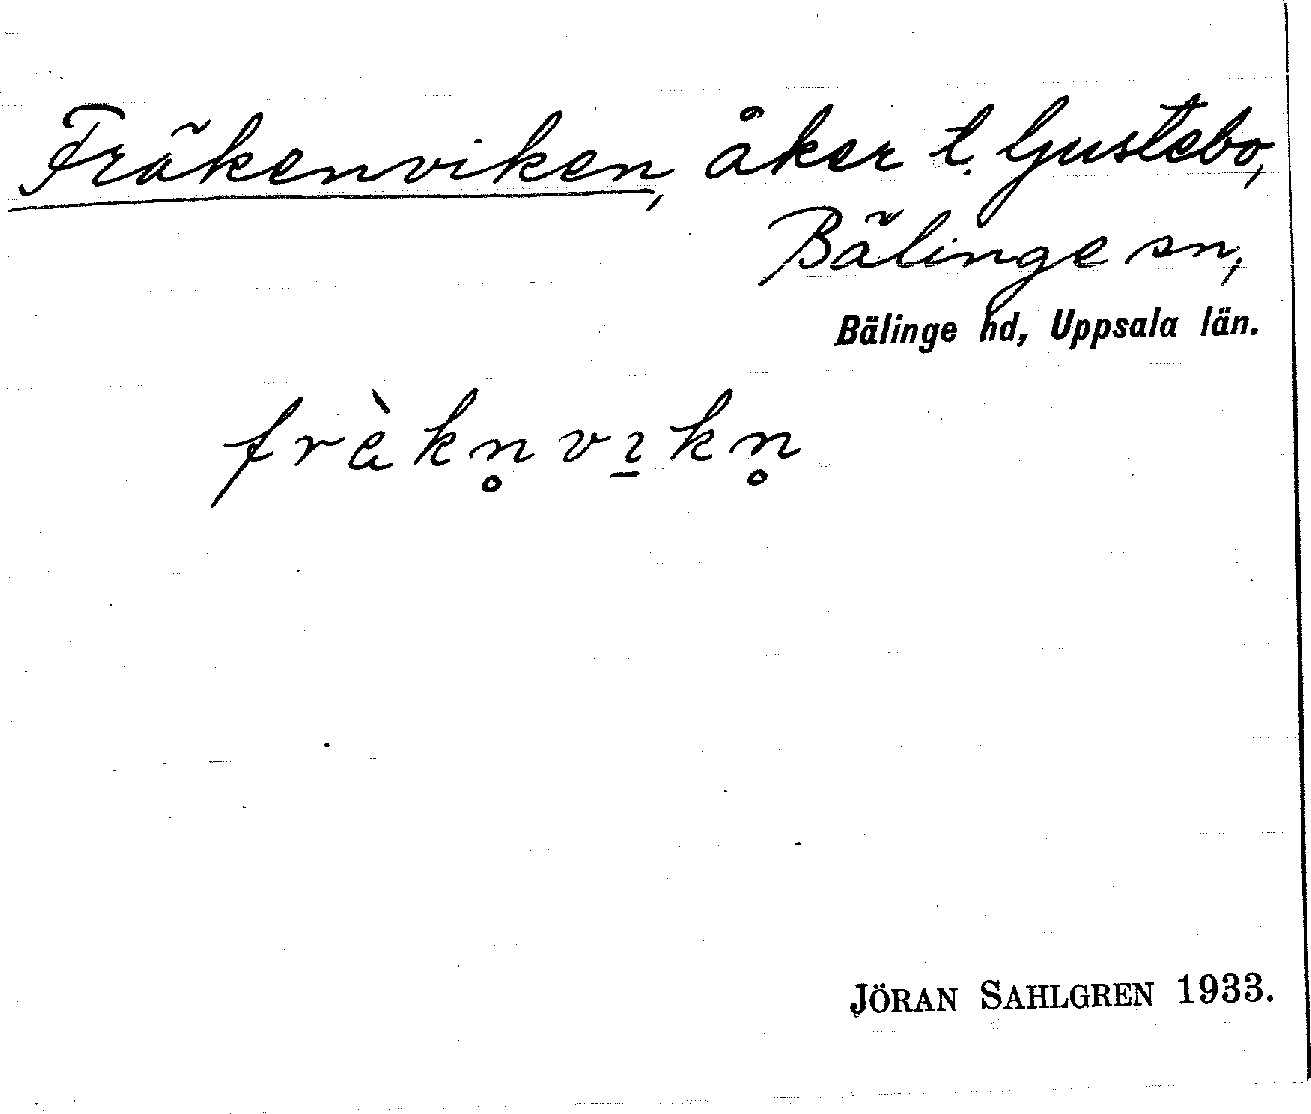 Fräkenviken, åker t. Ljustebo,
Bälinge sn,
Bälinge hd, Uppsala län.
frὲkn̥vɪ̱kn̥
JÖRAN SAHLGREN 1933.